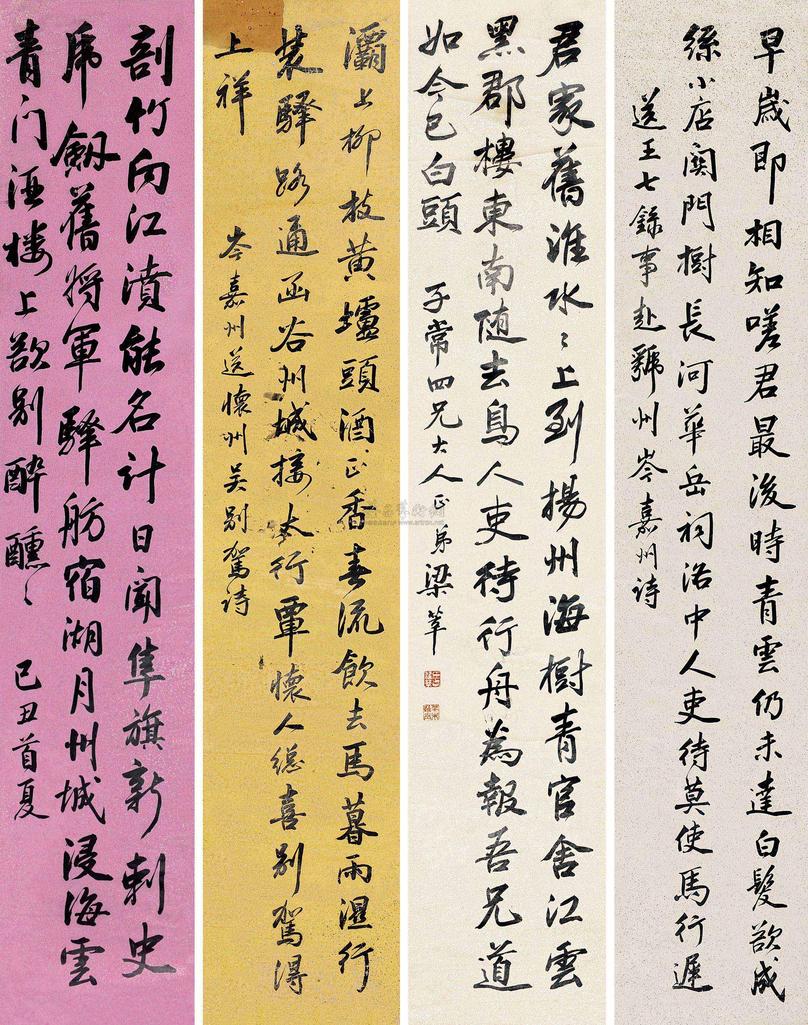 早歲即相知嗟君最後時青雲仍未達白髮欲成
絲小店関門樹長河華岳祠洛中人吏待莫使馬行遲
送王七錄事赴虢州岑嘉州诗
君家舊淮水〻上到揚州海樹青官舍江雲
黑郡樓東南随去鳥人吏待行舟為報吾兄道
如今已白頭 子常四兄大人正 弟梁莘
灞上柳枝黃壚頭酒正香春流飲去馬暮雨濕行
装驛路通函谷州城接太行覃懷人總喜別駕得
上祥 岑嘉州送懷州吴別駕诗
剖竹向江濆能名計日聞隼旗新刺史
虎劔舊将軍驛舫宿湖月州城浸海雲
青门酒楼上欲别醉醺〻 己丑首夏